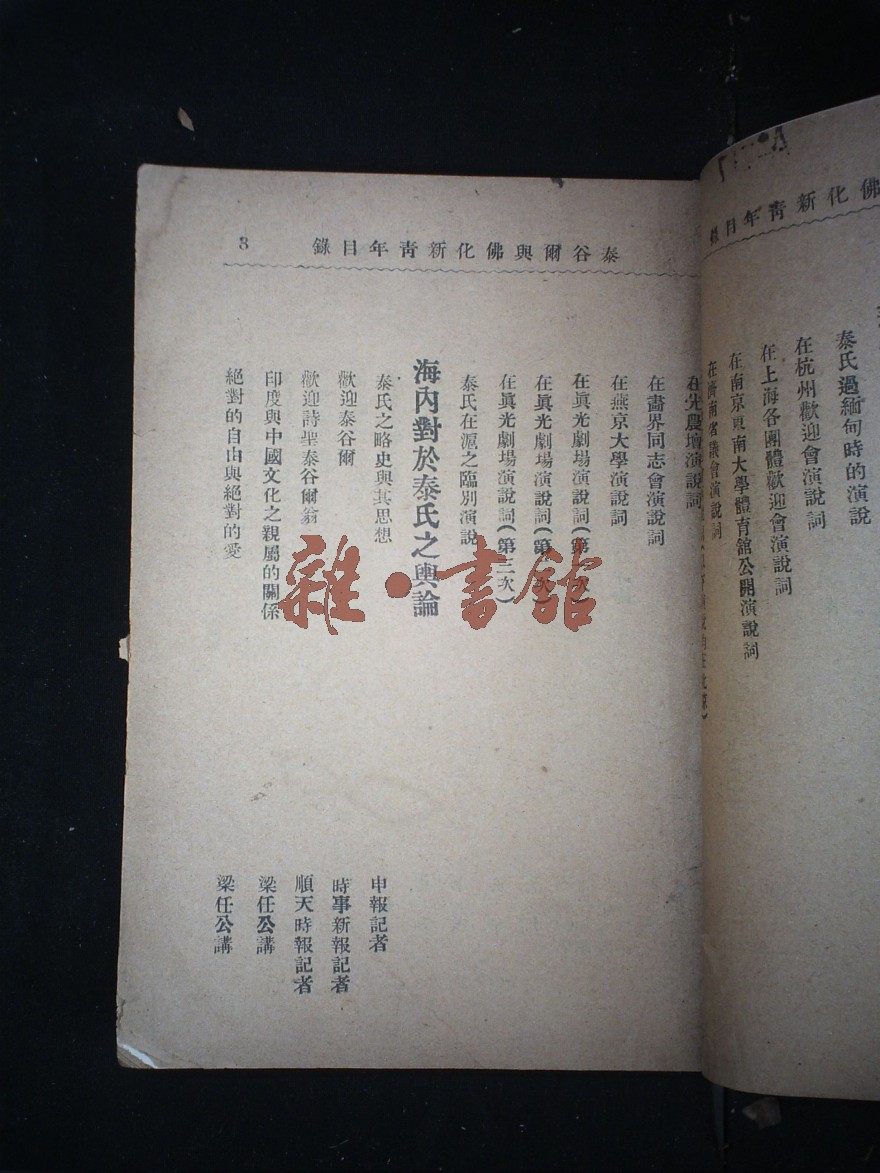 佛化新青年目錄
泰氏過緬甸時的演說
在杭州歡迎會演說詞
在上海各團體歡迎會演說詞
在南京東南大學體育館公開演說詞
在濟南省議會演說詞
泰谷爾與佛化新青年目錄 3
在先農壇演說詞
在畵界同志會演說詞
在燕京大學演說詞
在眞光劇場演說詞(第 次)
在眞光劇場演說詞(第 次)
在眞光劇場演說詞(第三次)
泰氏在滬之臨別演說
海內對於泰氏之輿論
泰氏之略史與其思想 申報記者
歡迎泰谷爾 時事新報記者
歡迎詩聖泰谷爾翁 順天時報記者
印度與中國文化之親屬的關係 梁任公講
絕對的自由與絕對的愛 梁任公講
雜·書館